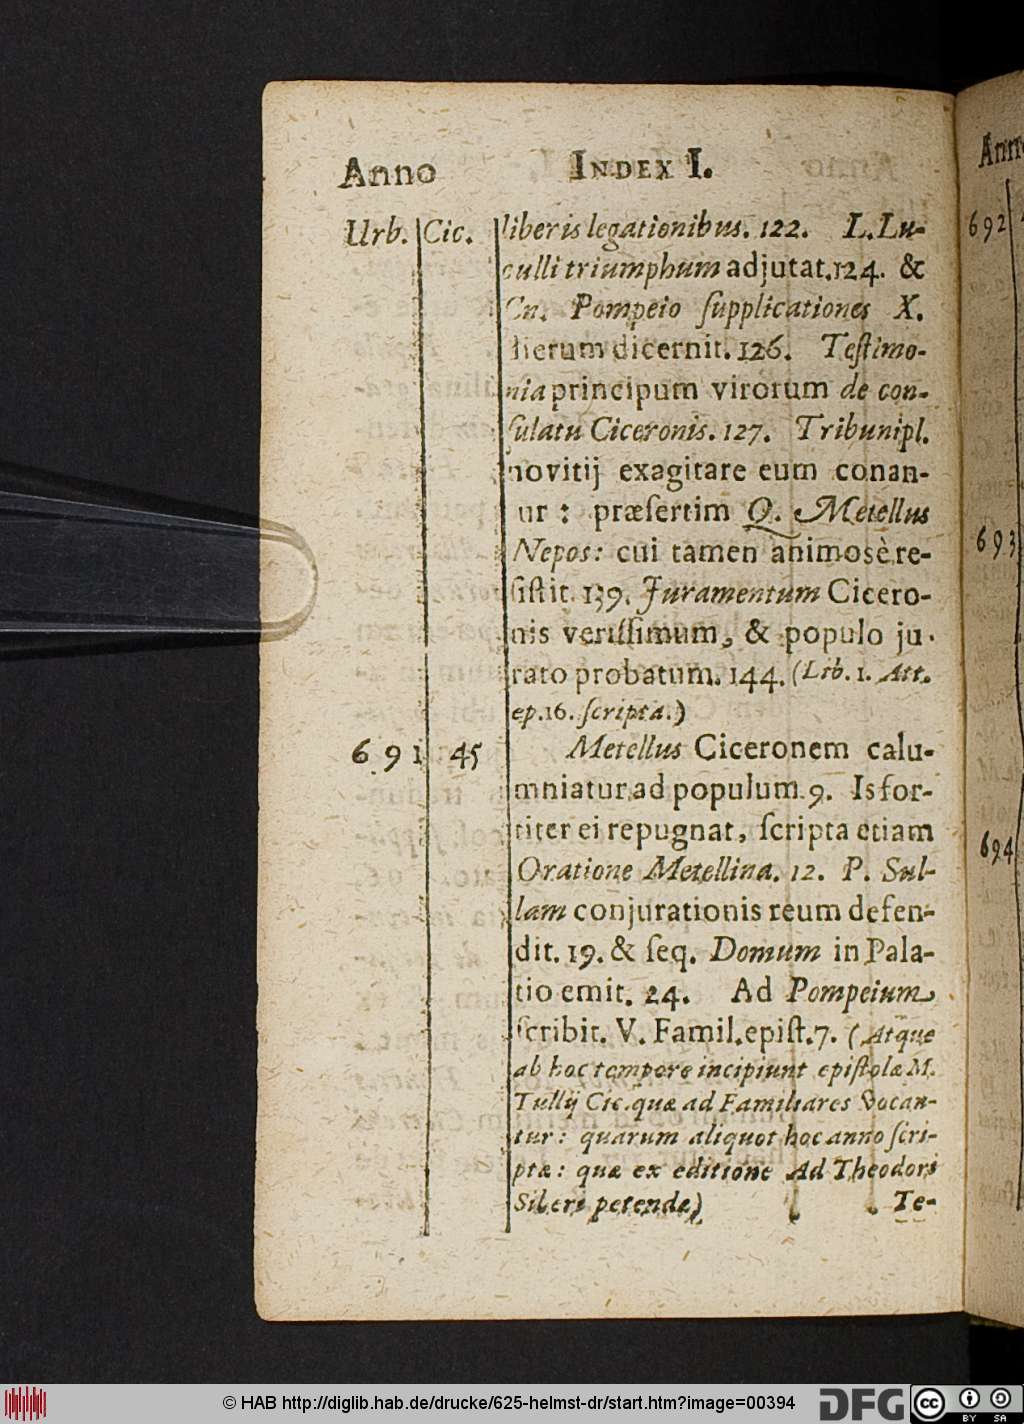 Anno INDEX I.
Urb. Cic. liberis legationibus. 122. L. Lu-
culli triumphum adjutat. 124. &
Cn. Pompeio ſupplicationes X.
dierum dicernit. 126. Teſtimo-
nia principum virorum de con-
ſulatu Ciceronis. 127. Tribuni pl.
novitij exagitare eum conan-
ur : præſertim Q. Metellus
Nepos: cui tamen animosè re-
ſiſtit. 139. Juramentum Cicero-
nis veriſſimum, & populo ju-
rato probatum. 144. (Lib. 1. Att.
ep. 16. ſcripta.)
691 45 Metellus Ciceronem calu-
mniatur ad populum. 9. Is for-
titer ei repugnat, ſcripta etiam
Oratione Metellina. 12. P. Sul-
lam conjurationis reum defen-
dit. 19. & ſeq. Domum in Pala-
tio emit. 24. Ad Pompeium
ſcribit. V. Famil. epiſt. 7. (Atque
ab hoc tempore incipiunt epiſtolæ M.
Tullij Cic. quæ ad Familiares vocan-
tur: quarum aliquot hoc anno ſcri-
ptæ: quæ ex editione Ad Theodori
Siberi petendæ)
Te-
692
693
694
© HAB http://diglib.hab.de/drucke/625-helmst-dr/start.htm?image=00394
DFG
cc BY SA